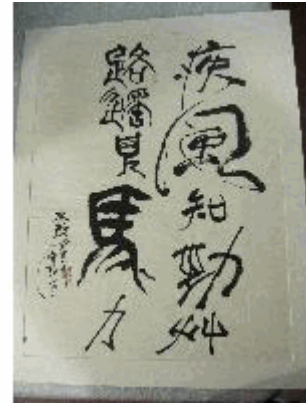 疾風知勁艸
路遥見馬力